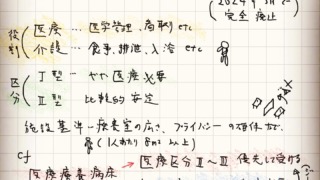 (2024年3月で
完全廃止)
役割
医療 … 医学管理、看取り etc
介護 … 食事、排泄、入浴 etc
区分
I型 ー やや医療必要
II型 比較的安定
施設基準 - 療養室の広さ、プライバシーの確保など
(1人あたり 8m² 以上)
cf
医療療養病床 医療区分 II〜III 優先して受ける